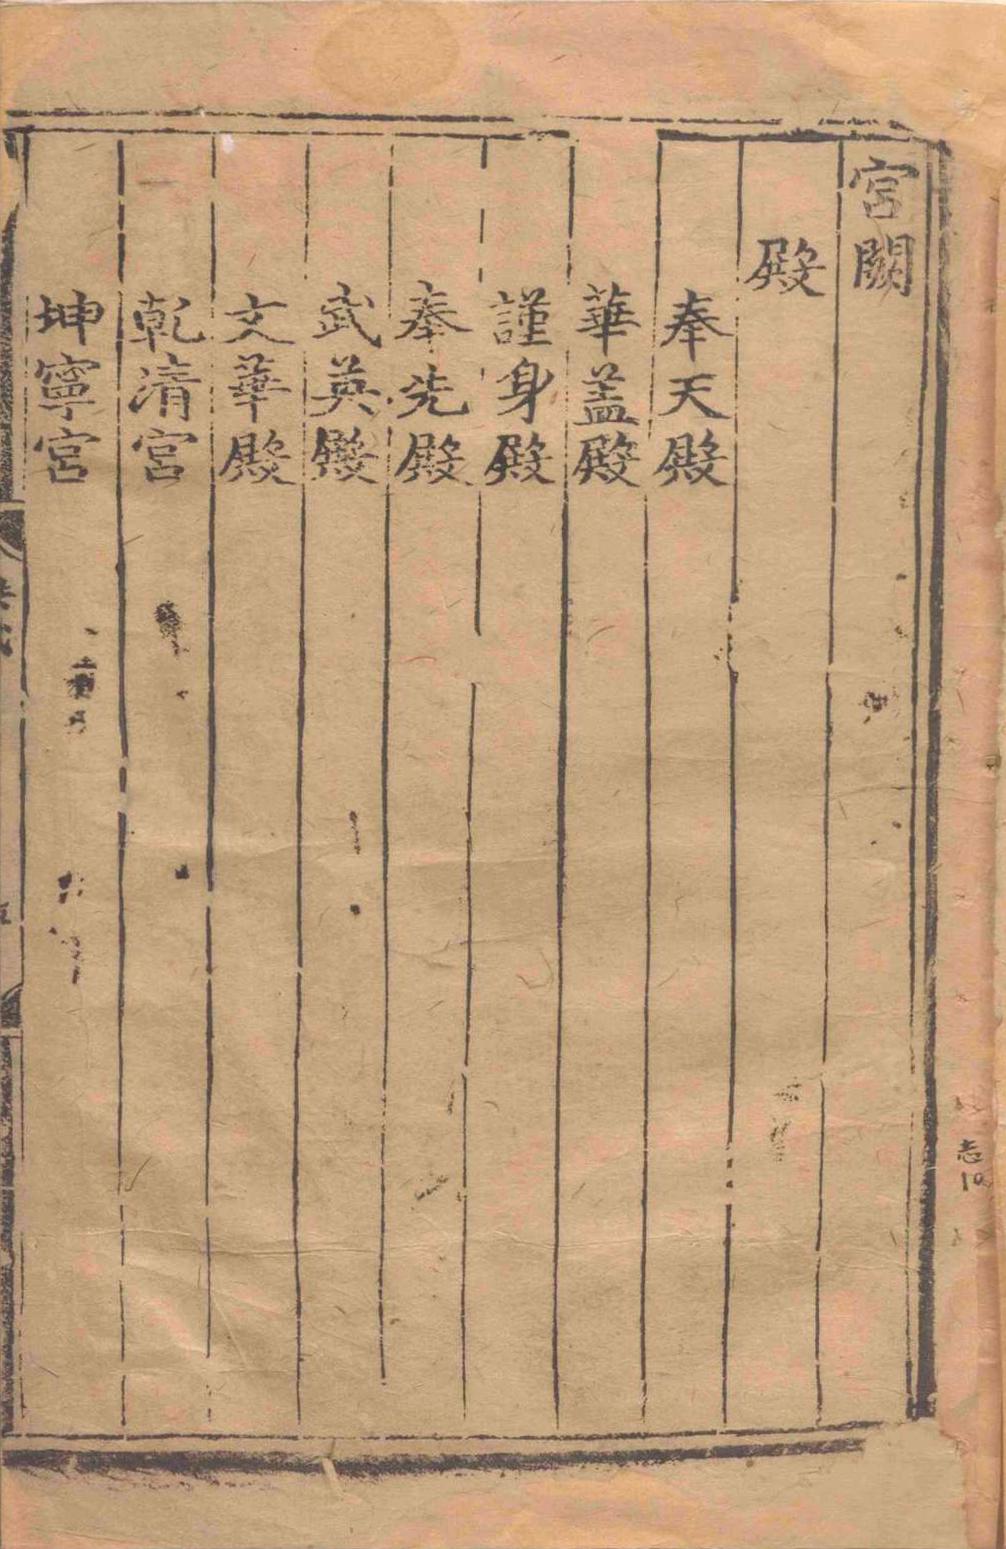 宮闕
殿
奉天殿
華盖殿
謹身殿
奉先殿
武英殿
文華殿
乾清宮
坤寧宮